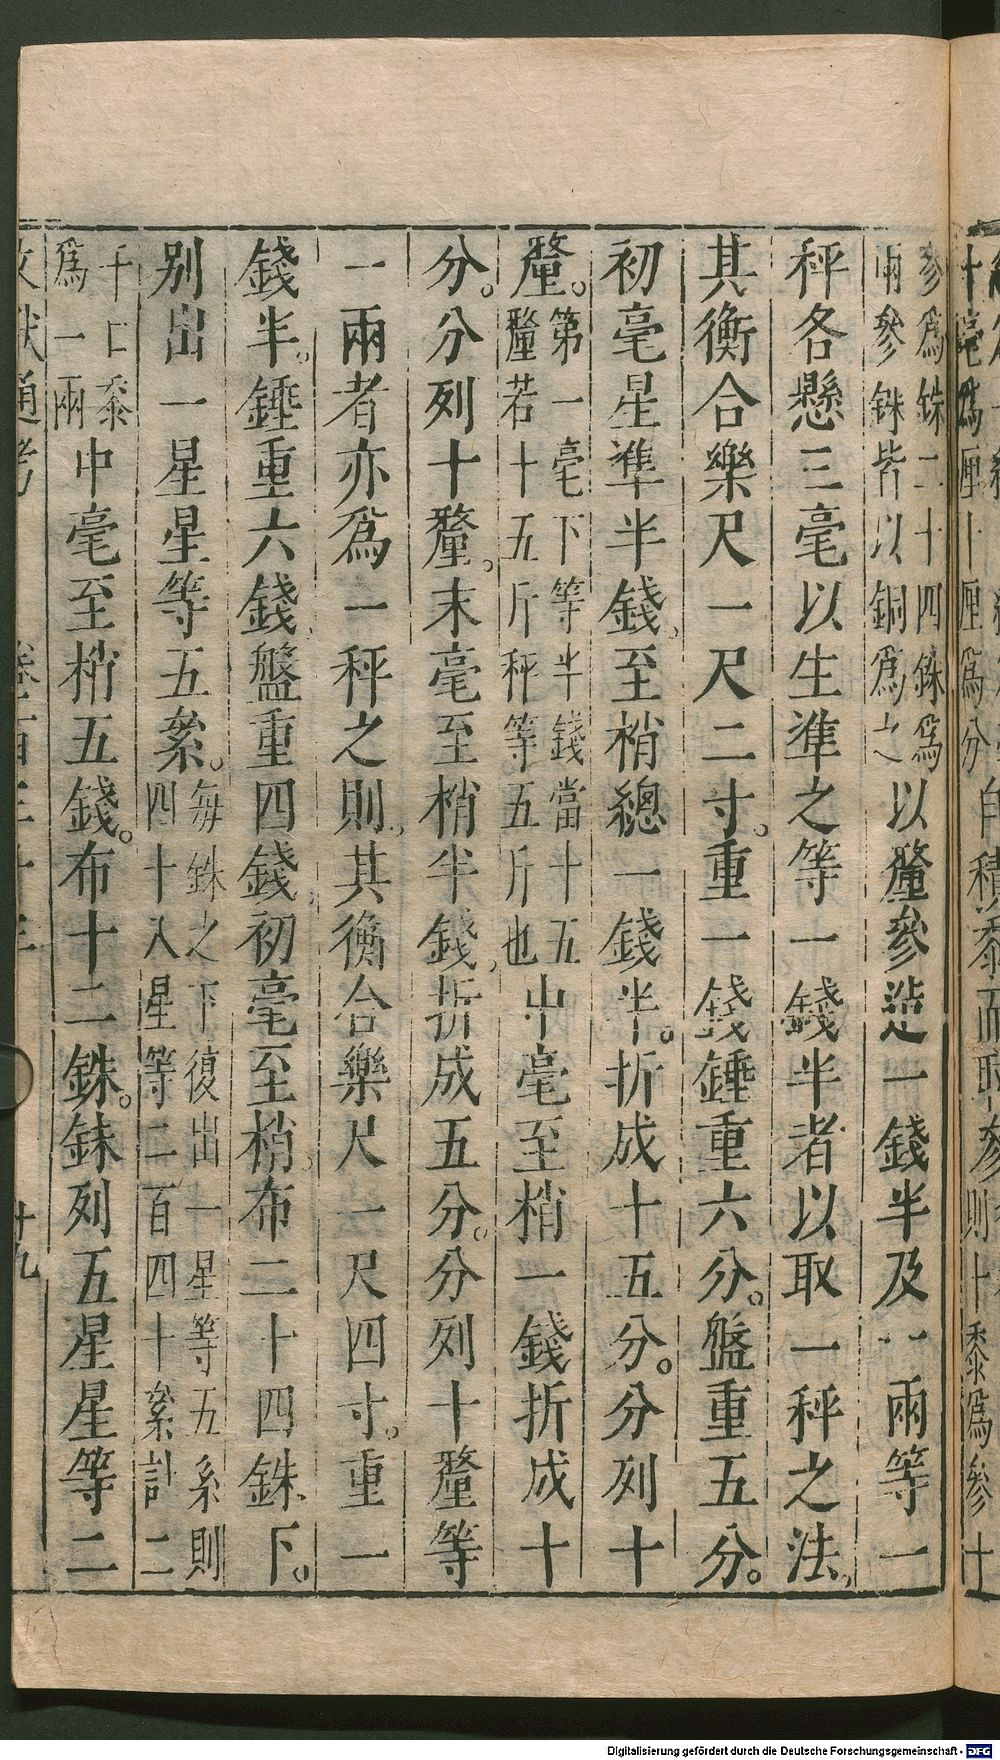 參爲銖二十四銖爲
兩參銖皆以銅爲之
以𨤲參造一錢半及一兩等一
秤各懸三毫以生準之等一錢半者以取一秤之法
其衡合樂尺一尺二寸。重一錢錘重六分。盤重五分。
初毫星準半錢至梢總一錢半。折成十五分。分列十
𨤲。
第一毫下等半錢當十五
𨤲若十五斤秤等五斤也
中毫至梢一錢折成十
分。分列十𨤲。末毫至梢半錢折成五分。分列十𨤲等
一兩者亦爲一秤之則其衡合樂尺一尺四寸。重一
錢半。錘重六錢盤重四錢初毫至梢布二十四銖下。
別出一星星等五絫。
每銖之下復出一星等五系則
四十八星等二百四十絫計二
千口黍
爲一兩
中毫至梢五錢。布十二銖。銖列五星星等二
文獻通考 卷百三十三 十九
Digitalisierung gefördert durch die Deutsche Forschungsgemeinschaft - DFG